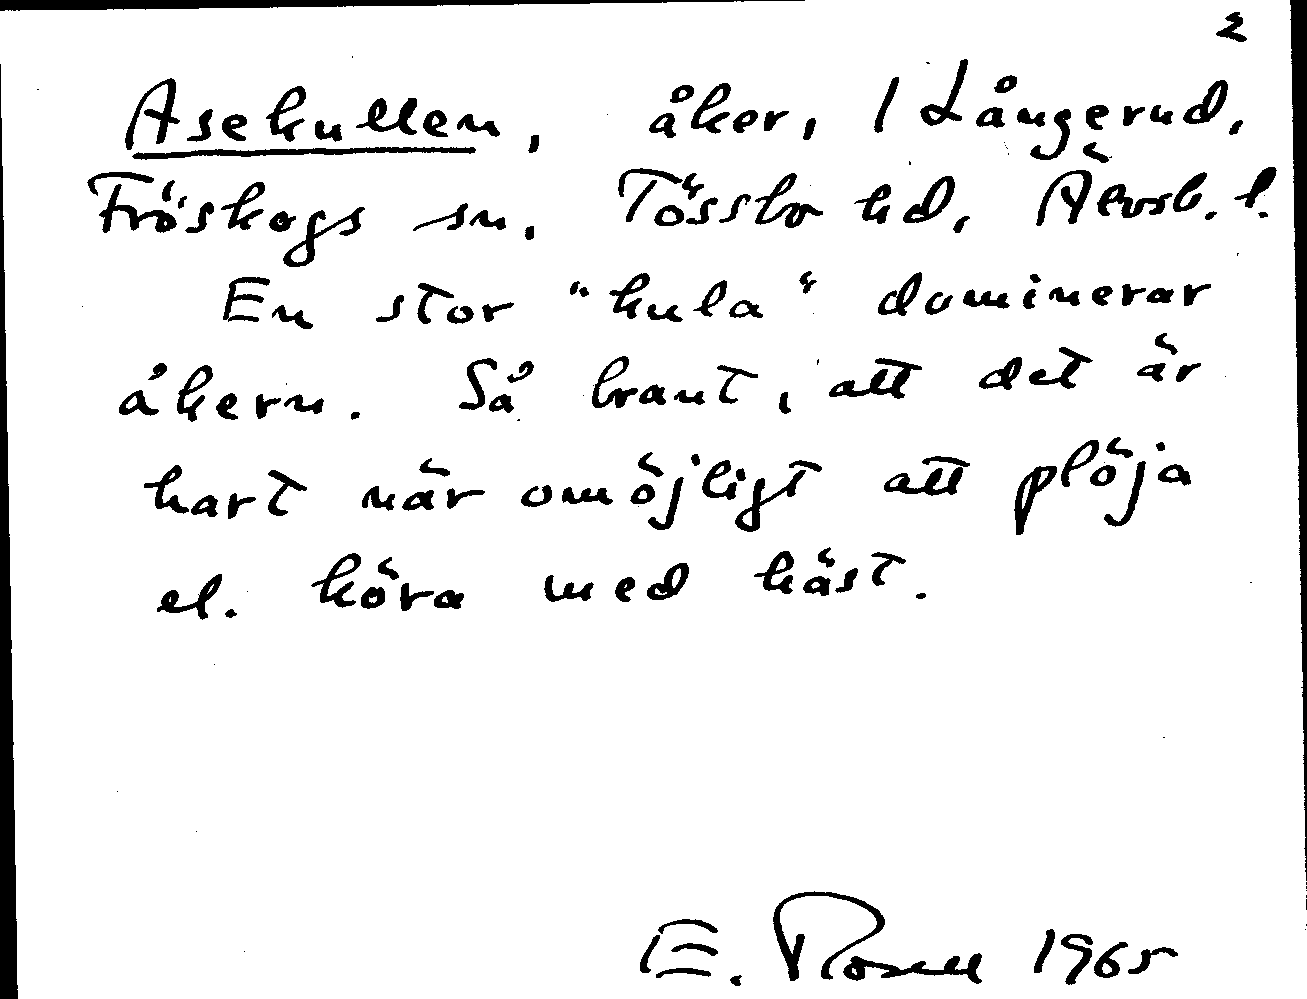 2
Asekullen, åker, 1 Långerud,
Fröskogs sn. Tössbo hd, Älvsb. l.
En stor "kula" dominerar
åkern. Så brant, att det är
hart när omöjligt att plöja
el. köra med häst.
E. Rosell 1965